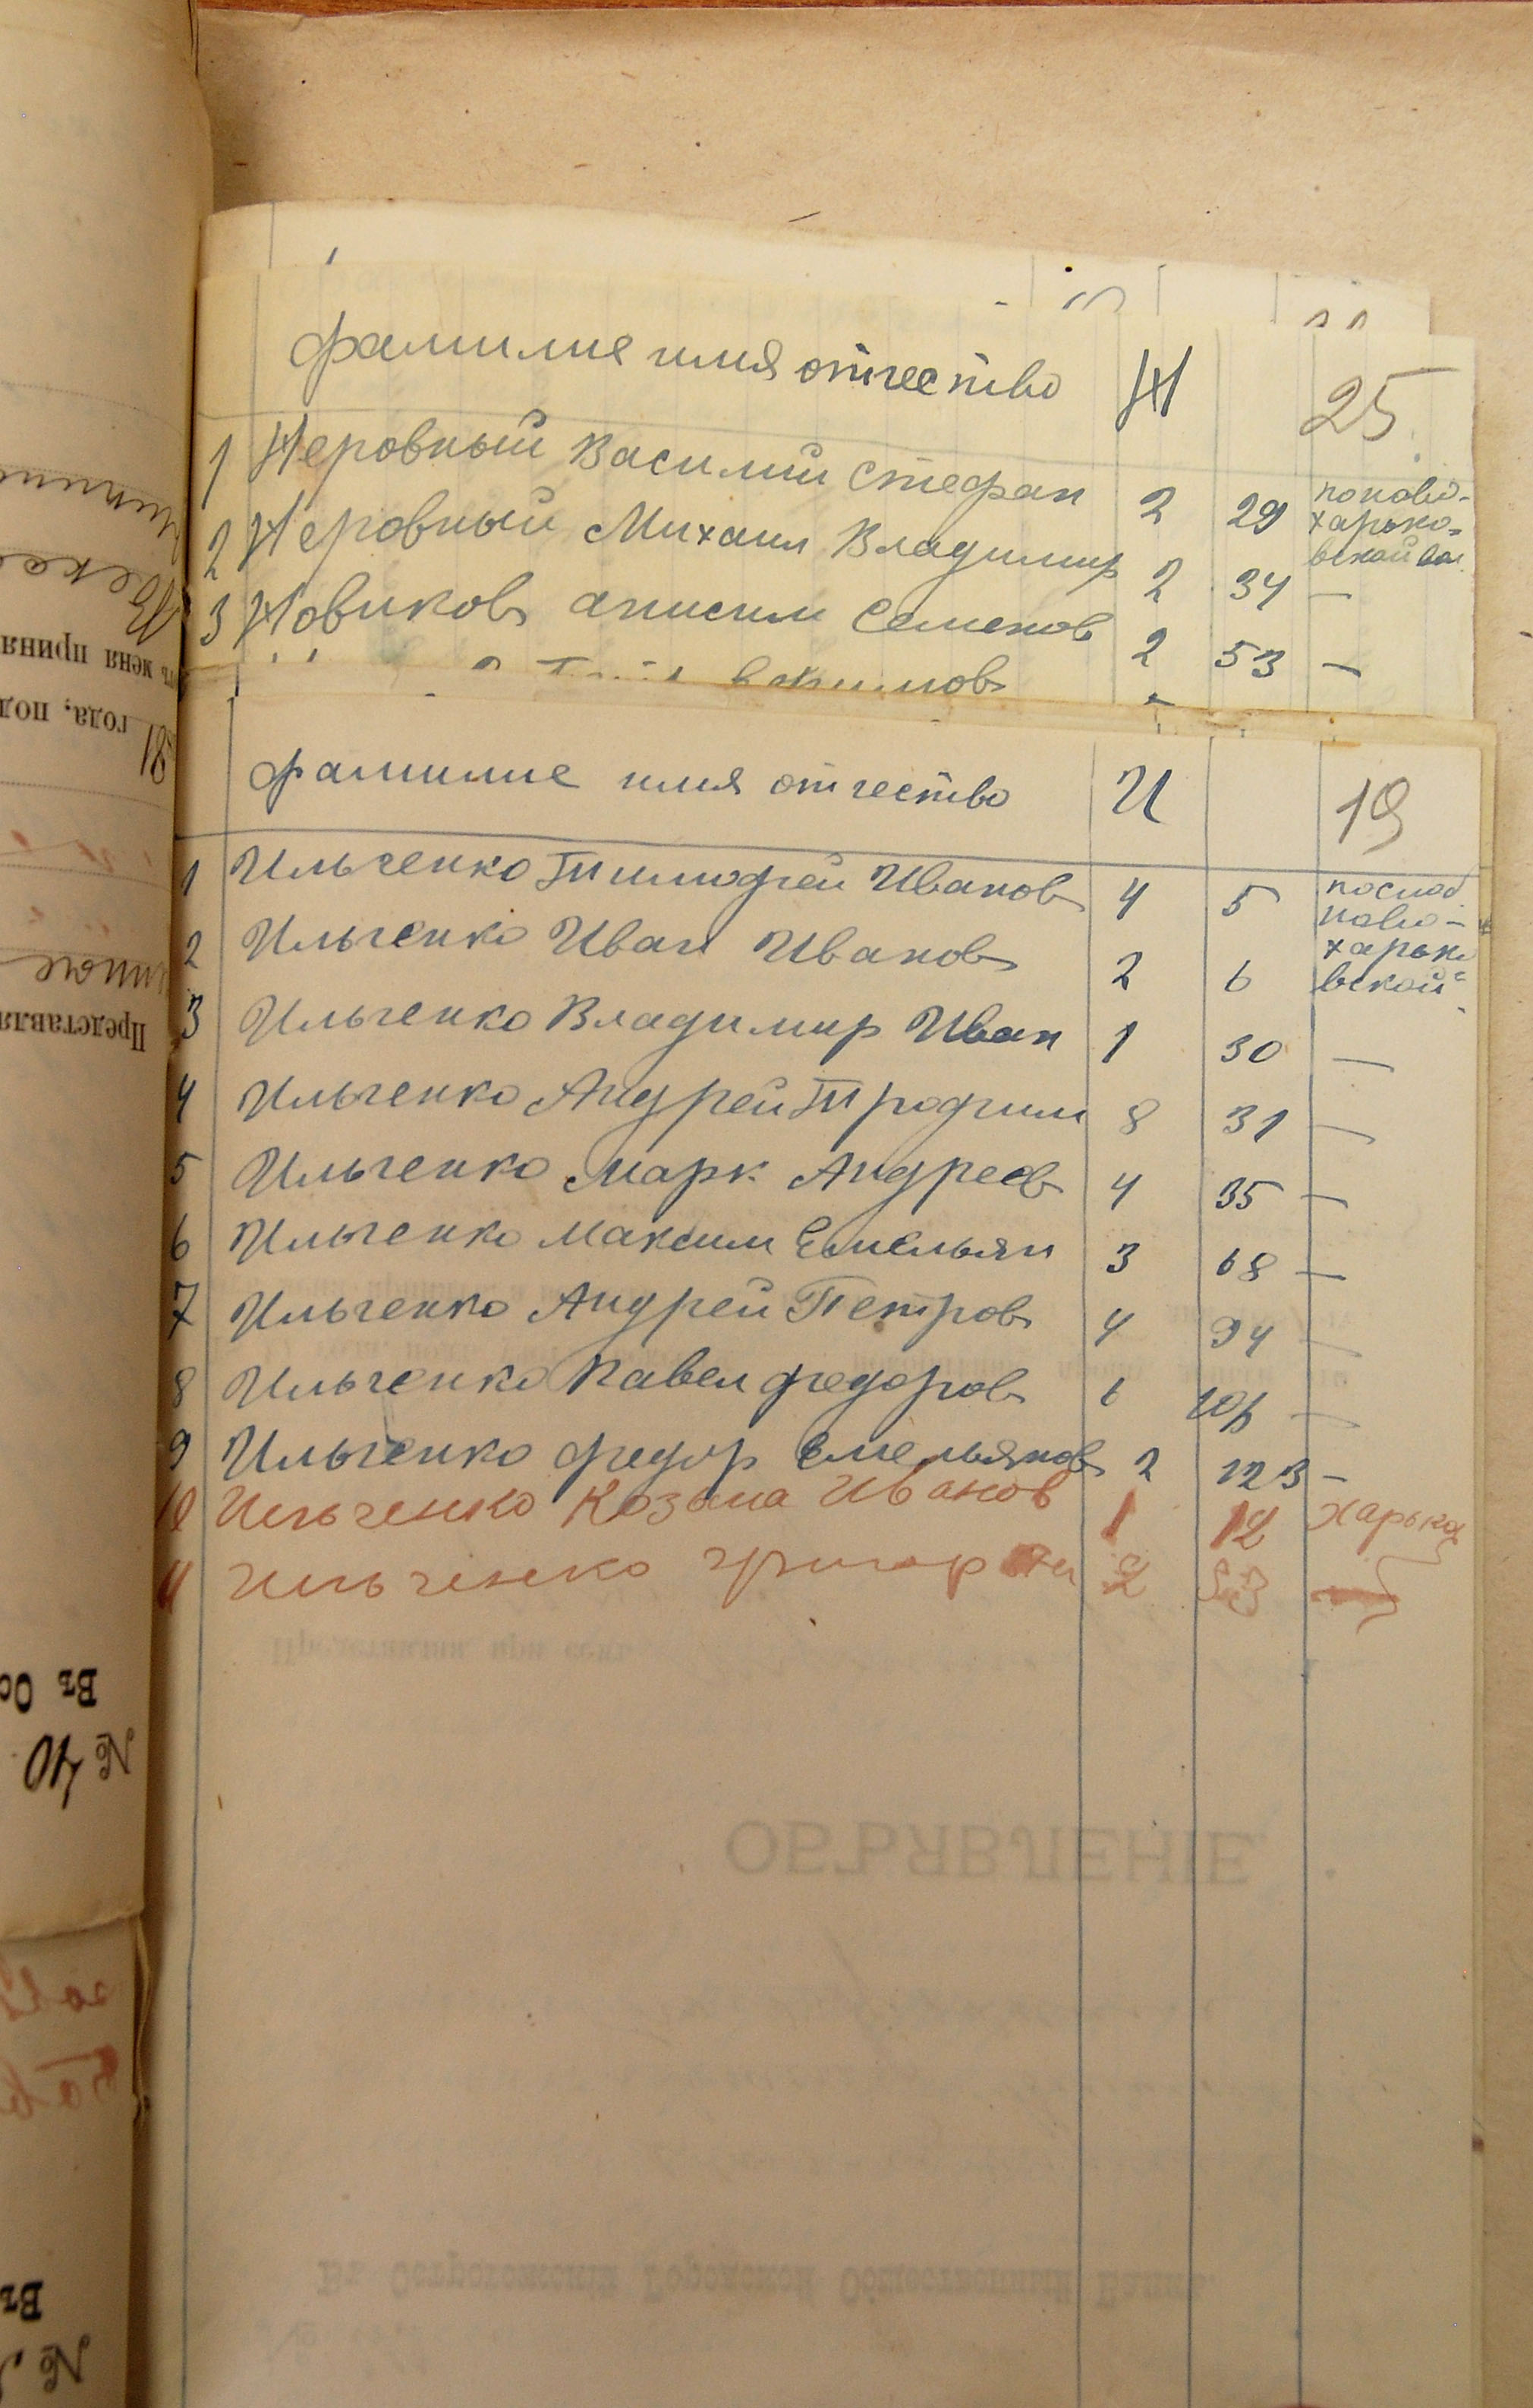 фамилие имя отчество Н 25
1 Неровный Василий Стефан 2 29 по ново-
харько-
вской вол
2 Неровный Михаил Владимир 2 34 —
3 Новиков анисим Семенов 2 53 —
фамилие имя отчество И 19
1 Ильченко Тимофей Иванов 4 5
ново-
харько
вской
2 Ильченко Иван Иванов 2 6
3 Ильченко Владимир Иван 1 30 —
4 Ильченко Андрей Трофим 8 31 —
5 Ильченко Марк Андреев 4 35 —
6 Ильченко Максим Емельян 3 68 —
7 Ильченко Андрей Петров 4 94 —
8 Ильченко Павел федоров 6 —
9 Ильченко федор Емельянов 2 123 —
10 Ильченко Козьма Иванов 1 12 харьков
11 Ильченко григор 2 53
ОБЪЯВЛЕНІЕ
№ 40
Въ
года, под
меня приня
Представля